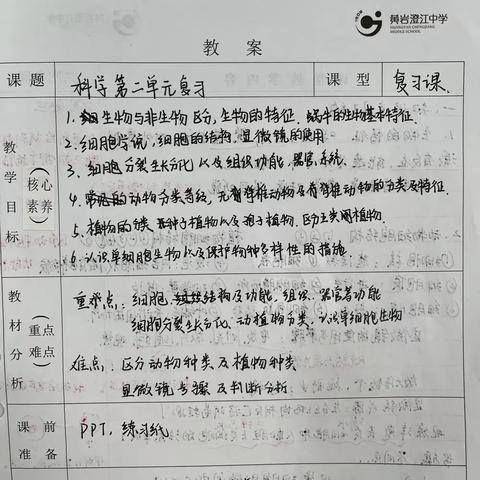 黄岩澄江中学
HUANGYAN CHENGJIANG MIDDLE SCHOOL
教 案
课 题
科学第二单元复习
课 型
复习课.
教学目标（核心素养）
1. 生物与非生物区分,生物的特征.蜗牛的生物基本特征.
2. 细胞学说,细胞的结构,显微镜的使用
3. 细胞分裂生长分化以及组织功能,器官,系统.
4. 常见的动物分类等级,无脊椎动物及有脊椎动物的分类及特征.
5. 植物的分类 种子植物以及孢子植物.区分生类植物.
6. 认识单细胞生物以及保护物种多样性的措施.
教材分析（重点难点）
重难点：细胞,结构及功能,组织、器官等功能
细胞分裂生长分化、动植物分类、认识单细胞生物
难点：区分动物种类及植物种类
显微镜步骤及判断分析
课 前
准 备
PPT, 练习纸.